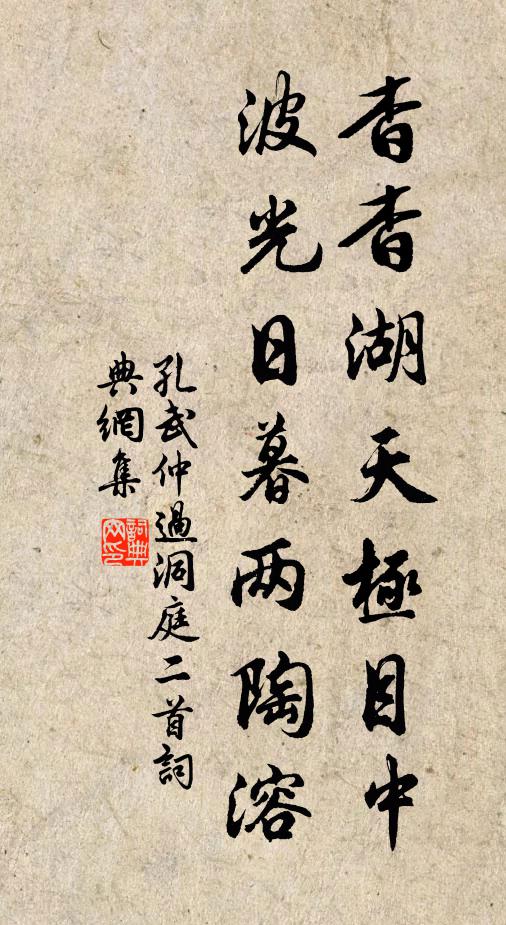 杳杳湖天極目中
波光日暮两陶溶
孔武仲過洞庭二首詞
典網集
詞典
网印